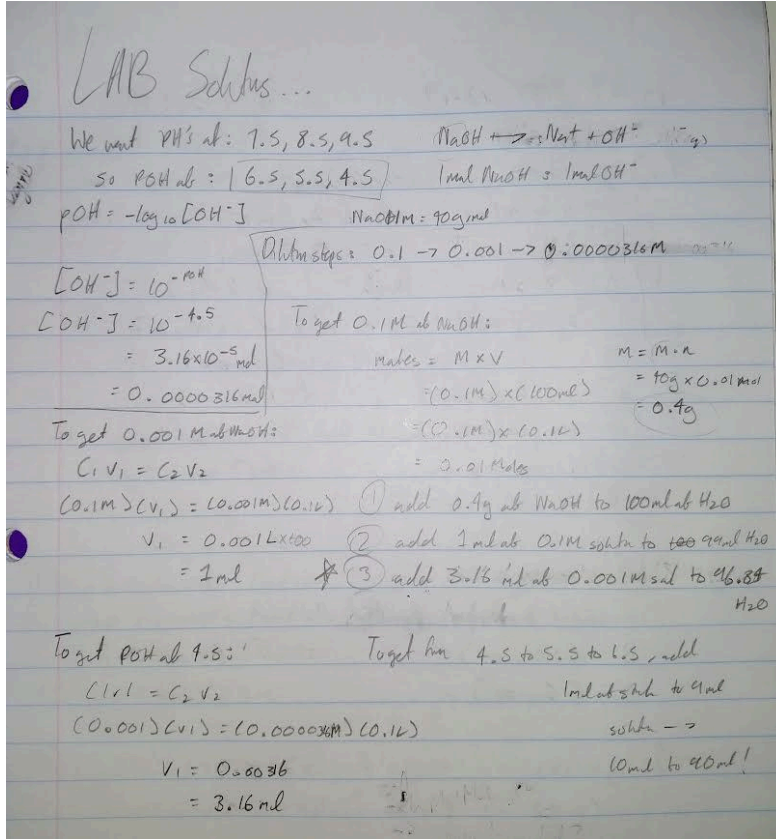 LAB Solutns...
We want PH's at: 7.5, 8.5, 9.5
NaOH → Na+ + OH-
so POH at: 6.5, 5.5, 4.5
1mol NaOH = 1mol OH-
pOH = -log10 [OH-]
NaOH M = 40g/mol
Dilutn steps: 0.1 -> 0.001 -> 0.0000316M
[OH-] = 10^-POH
[OH-] = 10^-4.5
= 3.16x10^-5 mol
= 0.0000316mol
To get 0.1M of NaOH:
moles = M x V
=(0.1M) x (100ml)
=(0.1M) x (0.1L)
= 0.01 Moles
M = M·n
= 40g x 0.01 mol
= 0.4g
To get 0.001M of NaOH:
C1V1 = C2V2
(0.1M)(V1) = (0.001M)(0.1L)
V1 = 0.001L
= 1ml
① add 0.4g of NaOH to 100ml of H2O
② add 1ml of 0.1M solutn to 99ml H2O
③ add 3.16 ml of 0.001M sol to 96.84
H2O
To get POH of 4.5:
C1V1 = C2V2
(0.001)(V1) = (0.0000316M)(0.1L)
V1 = 0.00316
= 3.16 ml
To get from 4.5 to 5.5 to 6.5, add
1ml of stock to 9ml
solutn -->
10ml to 90ml!